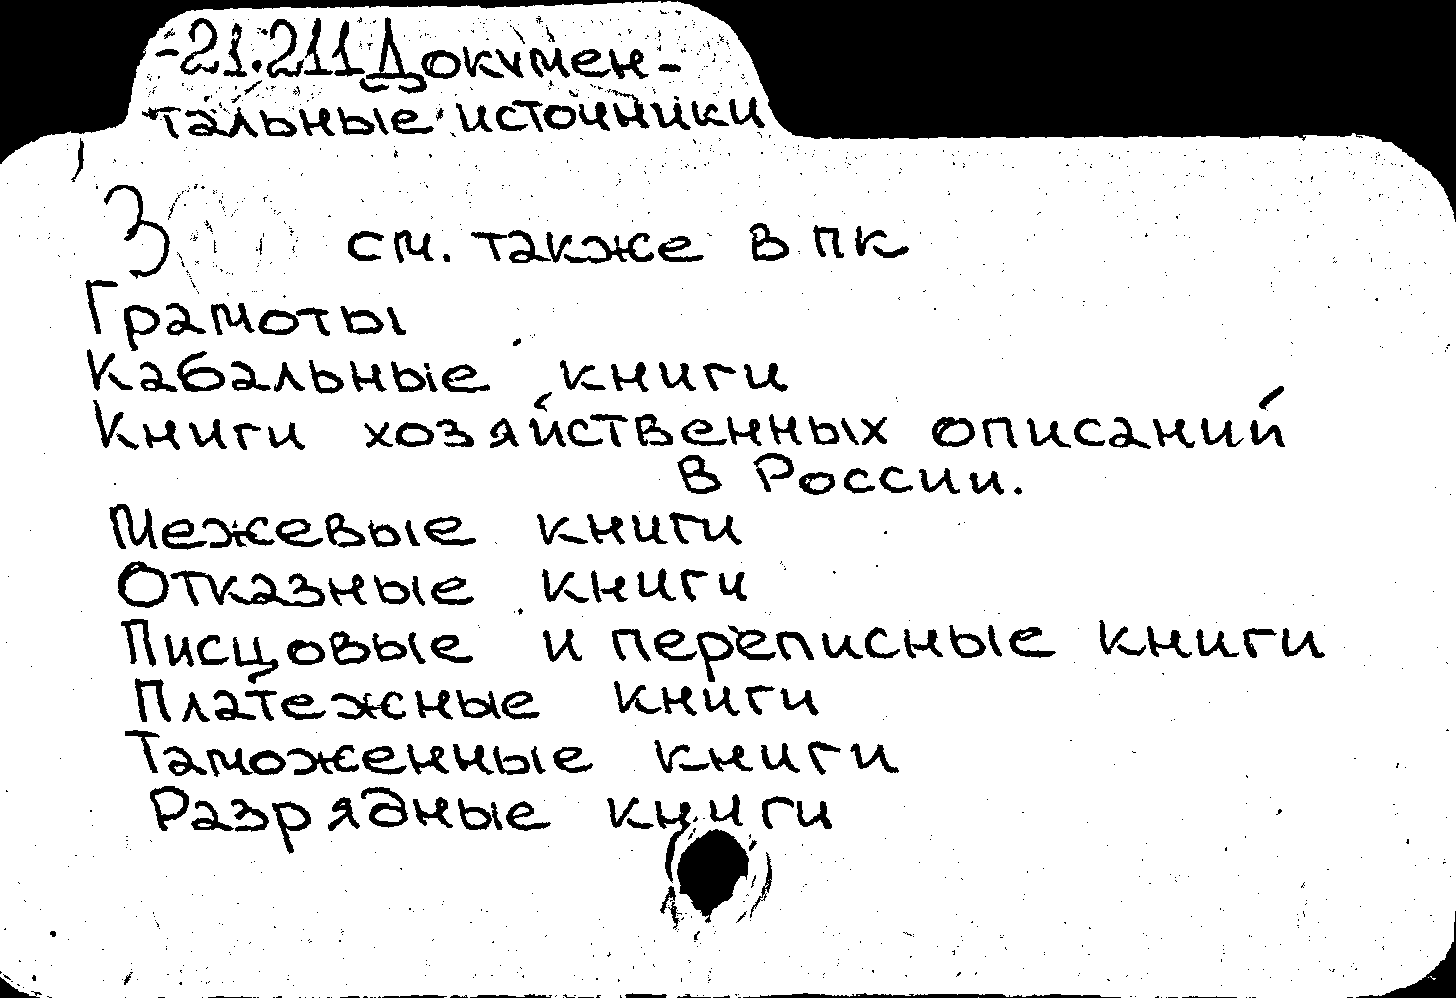 -21.211 Докумен-
тальные источники
3
см. также в пк
Грамоты
Кабальные книги
Книги хозяйственных описаний
в России.
Межевые книги
Отказные книги
Писцовые и переписные книги
Платежные книги
Таможенные книги
Разрядные книги